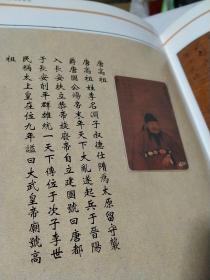 唐高祖
唐高祖姓李名淵字叔德仕隋為太原留守襲
爵唐國公煬帝末年天下大亂遂起兵于晉陽
入長安扶立恭帝旋廢帝自立建國號曰唐都
于長安削平群雄統一天下傳位于次子李世
民稱太上皇在位九年謚曰大武皇帝廟號高
祖